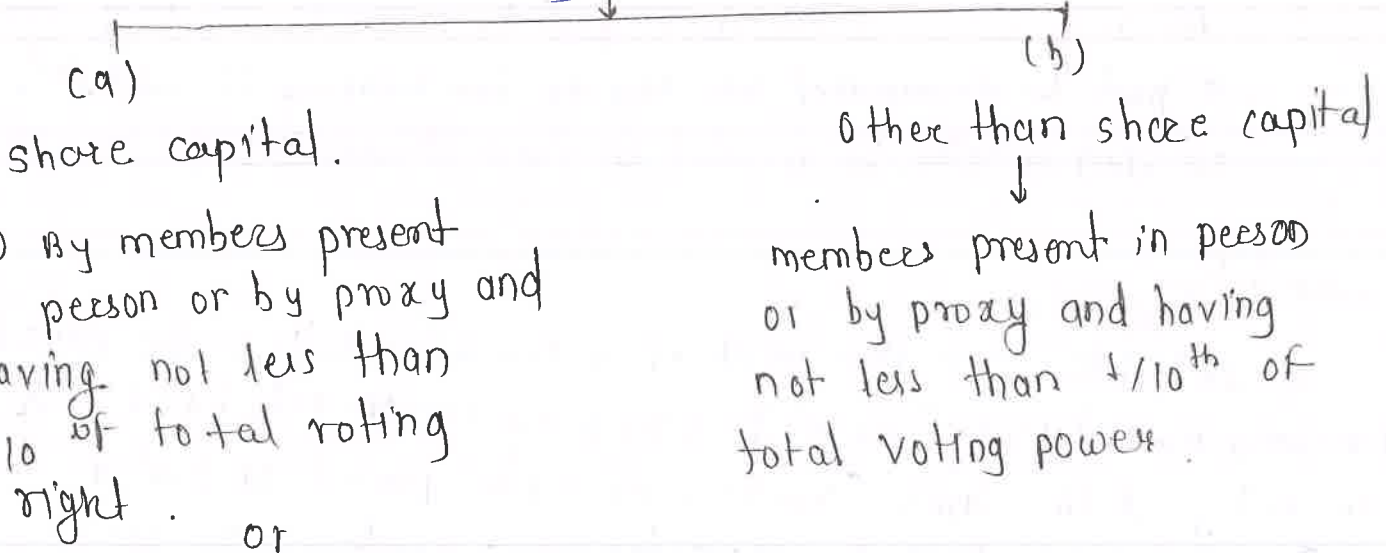 (a)
share capital.
By members present
person or by proxy and
aving not less than
10 of total voting
right.
or
(b)
other than share capital
members present in person
or by proxy and having
not less than 1/10th of
total voting power.